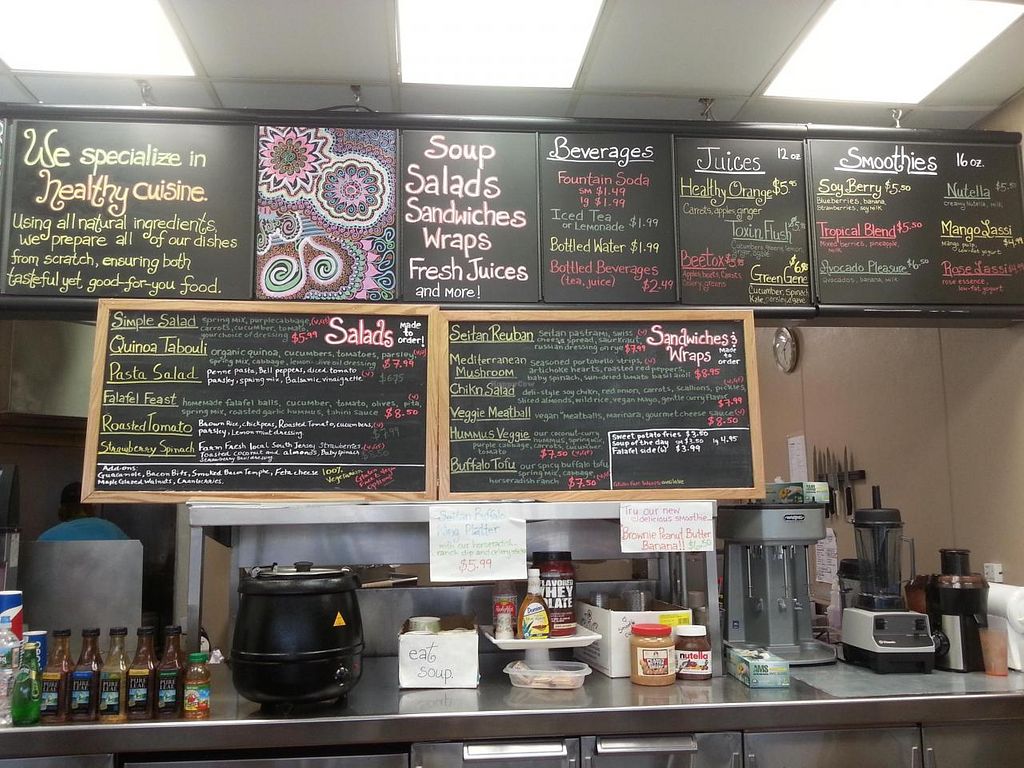 We specialize in
healthy cuisine.
Using all natural ingredients,
we prepare all of our dishes
from scratch, ensuring both
tasteful yet good-for-you food.
Soup
Salads
Sandwiches
Wraps
Fresh Juices
and more!
Beverages
Fountain Soda
sm $1.49
lg $1.99
Iced Tea
or Lemonade $1.99
Bottled Water $1.99
Bottled Beverages
(tea, juice) $2.49
Juices 12 oz
Healthy Orange
Carrots, apples, ginger
Toxin Flush
Beetox
Apples, beets, carrots,
celery, greens
Green Gene
Cucumber, Spinach
Kale, parsley, apple
Smoothies 16 oz.
Soy Berry $5.50
Blueberries, banana,
strawberries, soy milk
Tropical Blend $5.50
Mixed berries, pineapple,
milk
Avocado Pleasure
avocados, banana, milk
Nutella
creamy Nutella, milk
Mango Lassi
mango pulp,
low-fat yogurt
Rose Lassi
rose essence,
low-fat yogurt
Salads made to order!
Simple Salad spring mix, purple cabbage,
carrots, cucumber, tomato,
your choice of dressing $5.99
Quinoa Tabouli organic quinoa, cucumbers, tomatoes, parsley,
spring mix, cabbage, lemon-olive oil dressing $7.99
Pasta Salad Penne pasta, Bell peppers, diced tomato
parsley, spring mix, Balsamic vinaigrette
Falafel Feast homemade falafel balls, cucumber, tomato, olives, pita,
spring mix, roasted garlic hummus, tahini sauce $8.50
Roasted Tomato Brown Rice, chickpeas, Roasted Tomato, cucumbers,
parsley, Lemon mint dressing
Strawberry Spinach Farm Fresh local South Jersey Strawberries,
Toasted coconut and almonds, Baby Spinach
Strawberry dressing
Add-ons:
Guacamole, Bacon Bits, Smoked Bacon Tempeh, Feta cheese
Maple Glazed Walnuts, Cranberries,
100%
Vegetarian
Sandwiches &
Wraps made to order
Seitan Reuban Seitan pastrami, swiss
cheese spread, sauerkraut,
russian dressing on rye $7.99
Mediterranean
Mushroom seasoned portobello strips,
artichoke hearts, roasted red peppers,
baby spinach, sun-dried tomato basil aioli $8.95
Chikn Salad deli-style soy chikn, red onion, carrots, scallions, pickles,
sliced almonds, wild rice, vegan Mayo, gentle curry flavor $7.99
Veggie Meatball vegan "meatballs, marinara, gourmet cheese sauce
$8.50
Hummus Veggie our coconut-curry
hummus, spring mix,
purple cabbage,
tomato, carrots, cucumber
$7.50
Buffalo Tofu our spicy buffalo tofu
spring mix, cabbage,
horseradish ranch $7.50
Sweet potato fries $3.50
Soup of the day sm $3.50 lg 4.95
Falafel side $3.99
Gluten Free Wraps available
Seitan Buffalo
Wing Platter
with our horseradish
ranch dip and celery sticks
$5.99
Try our new
delicious smoothie...
Brownie Peanut Butter
Banana!!
eat
soup.
FLAVORED
WHEY
nutella
PURE LEAF
PURE LEAF
PURE LEAF
PURE LEAF
PURE LEAF